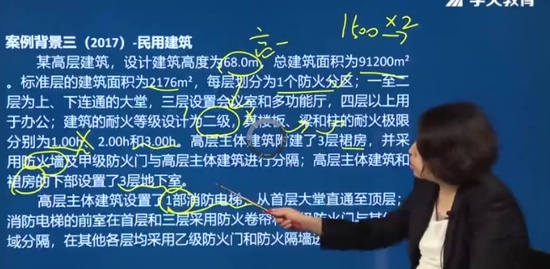 学天教育
1500×2
六 一
案例背景三（2017）-民用建筑
某高层建筑，设计建筑高度为68.0m，总建筑面积为91200m²。
标准层的建筑面积为2176m²，每层划分为1个防火分区；一至二
层为上、下连通的大堂，三层设置会议室和多功能厅，四层以上用
于办公；建筑的耐火等级设计为二级，其楼板、梁和柱的耐火极限
分别为1.00h、2.00h和3.00h。高层主体建筑附建了3层裙房，并采
用防火墙及甲级防火门与高层主体建筑进行分隔；高层主体建筑和
裙房的下部设置了3层地下室。
高层主体建筑设置了1部消防电梯，从首层大堂直通至顶层；
消防电梯的前室在首层和三层采用防火卷帘和
域分隔，在其他各层均采用乙级防火门和防火隔墙进